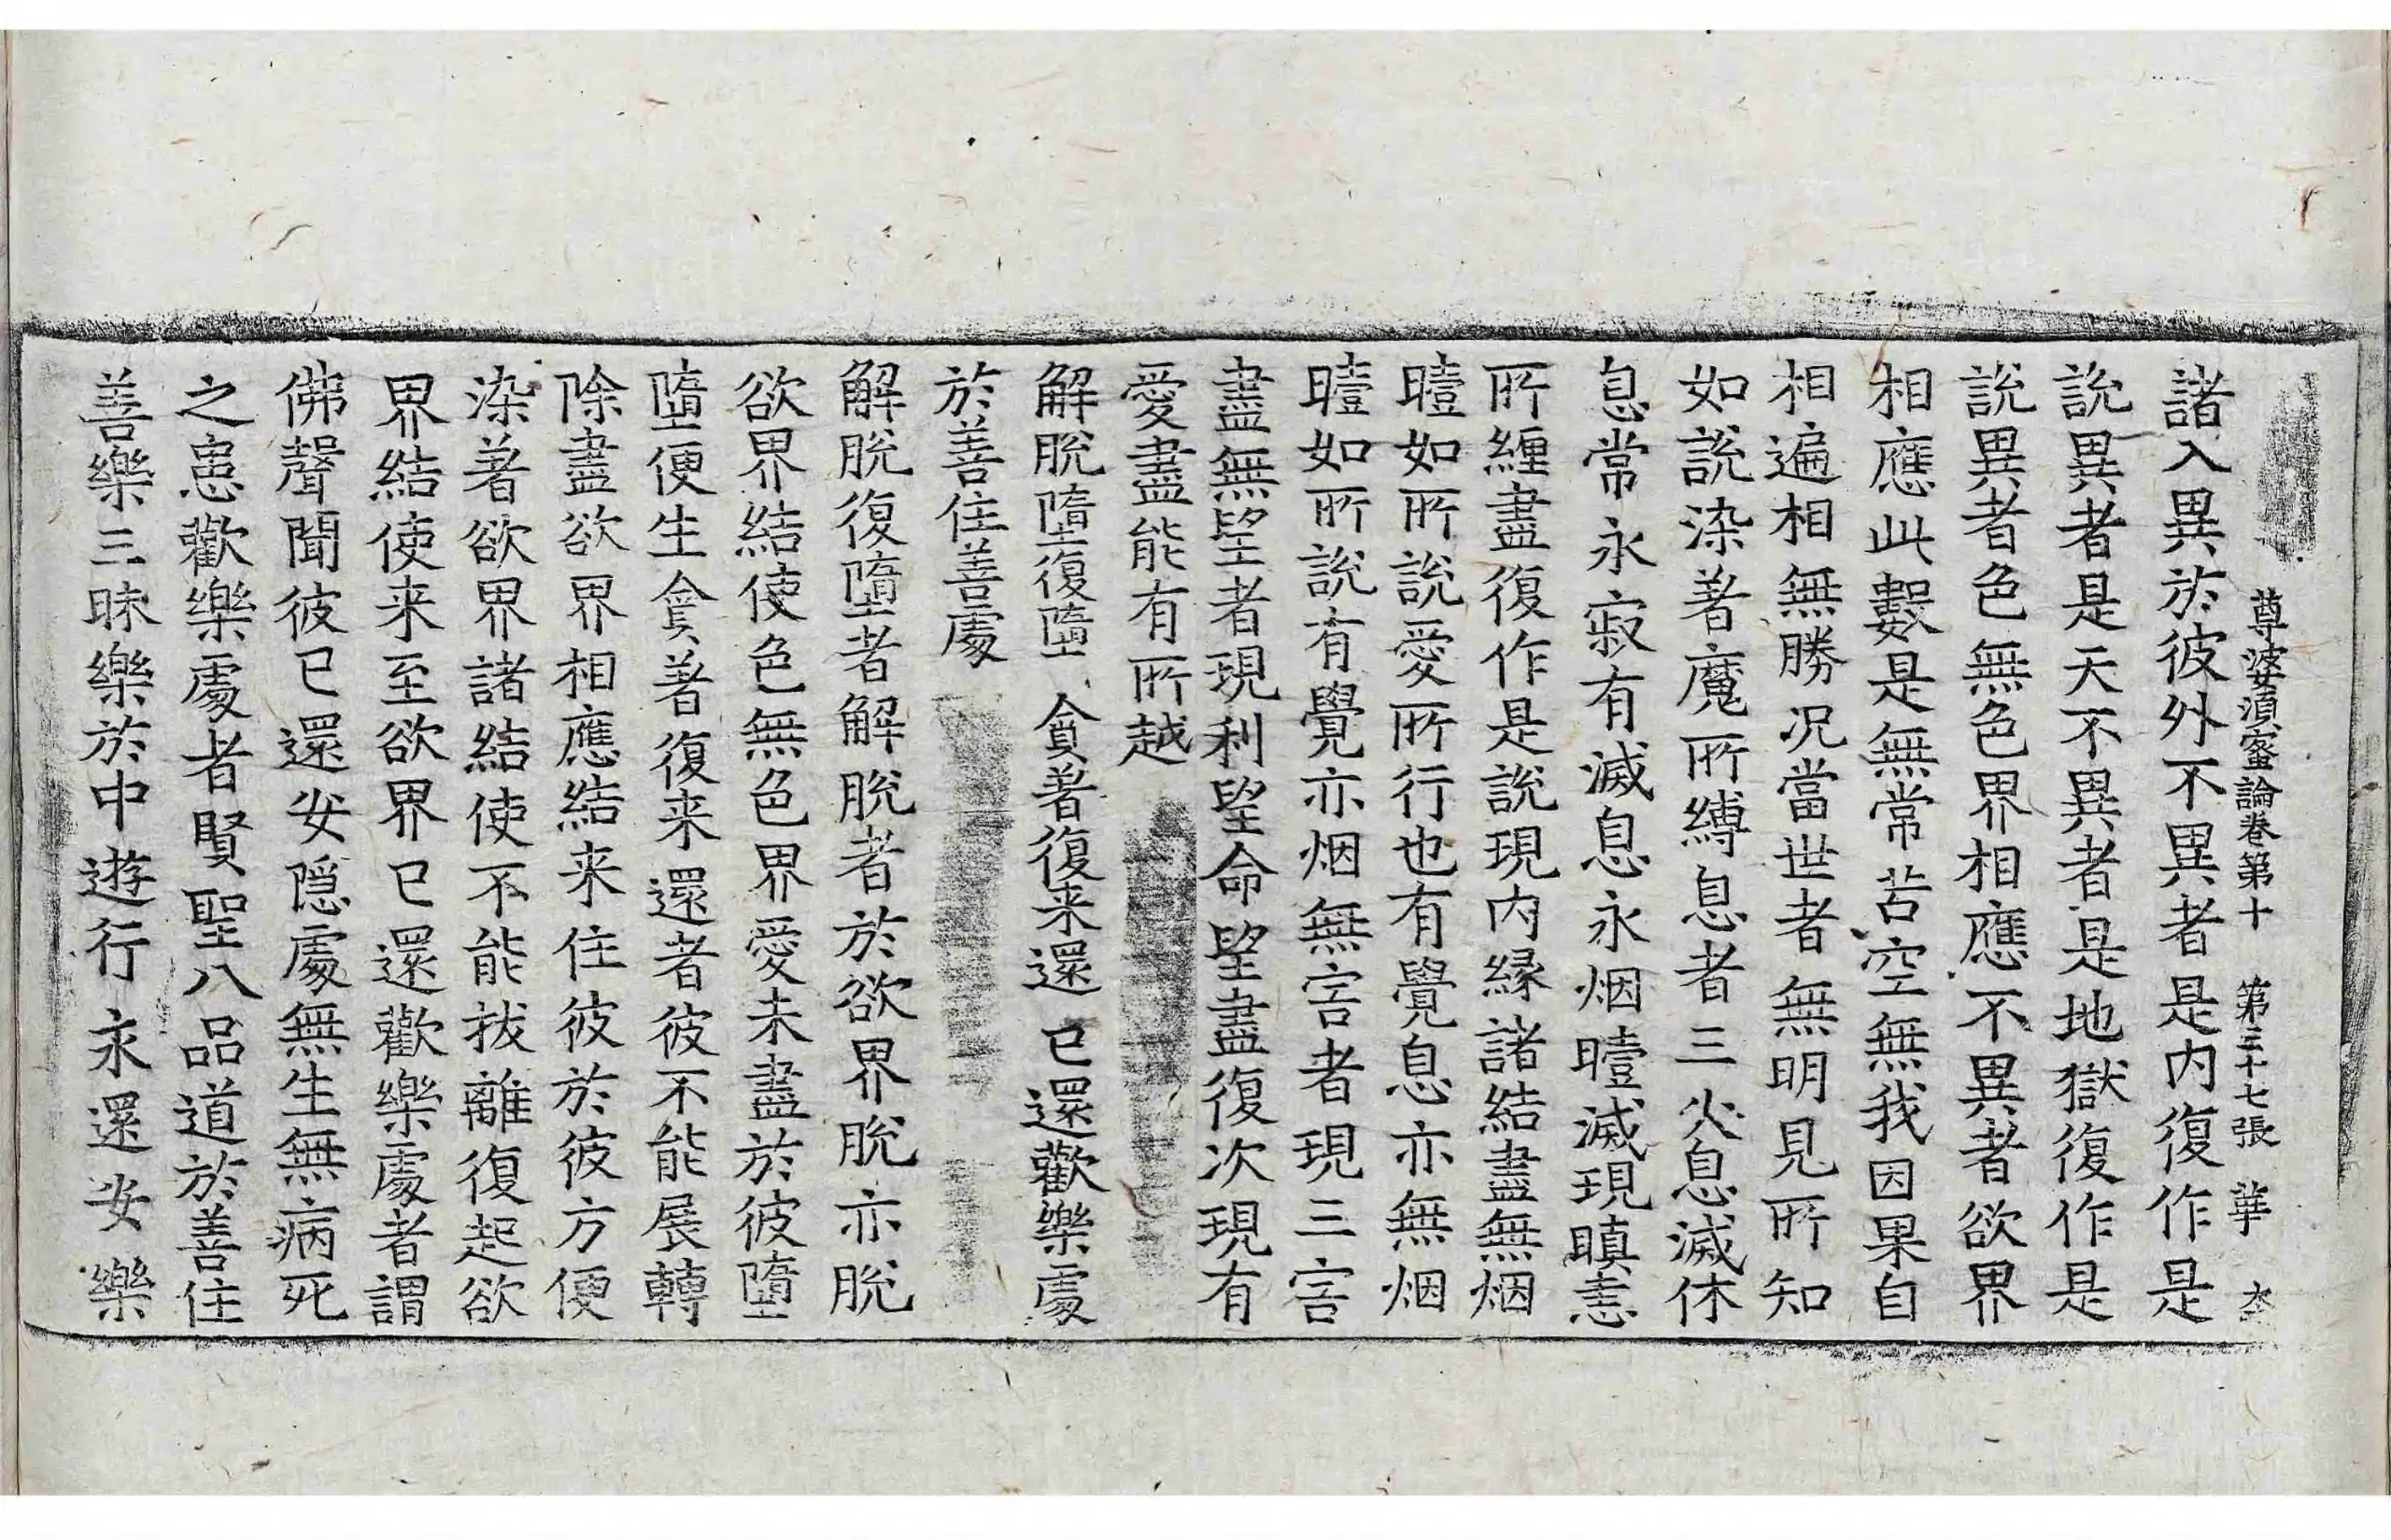 尊婆湏蜜論卷第十　第三十七張　華
諸入異於彼外不異者是内復作是
說異者是天不異者是地獄復作是
說異者色無色界相應不異者欲界
相應此數是無常苦空無我因果自
相遍相無勝況當世者無明見所知
如說染著魔所縛息者三火息滅休
息常永寂有滅息永烟曀滅現瞋恚
所纏盡復作是說現内緣諸結盡無烟
曀如所說愛所行也有覺息亦無烟
曀如所說有覺亦烟無害者現三害
盡無望者現利望命望盡復次現有
愛盡能有所越
解脫墮復墮　貪著復来還　已還歡樂處
於善住善處
解脫復墮者解脫者於欲界脫亦脫
欲界結使色無色界愛未盡於彼墮
墮便生貪著復来還者彼不能展轉
除盡欲界相應結来住彼於彼方便
染著欲界諸結使不能拔離復起欲
界結使来至欲界已還歡樂處者謂
佛聲聞彼已還安隱處無生無病死
之患歡樂處者賢聖八品道於善住
善樂三昧樂於中遊行永還安樂